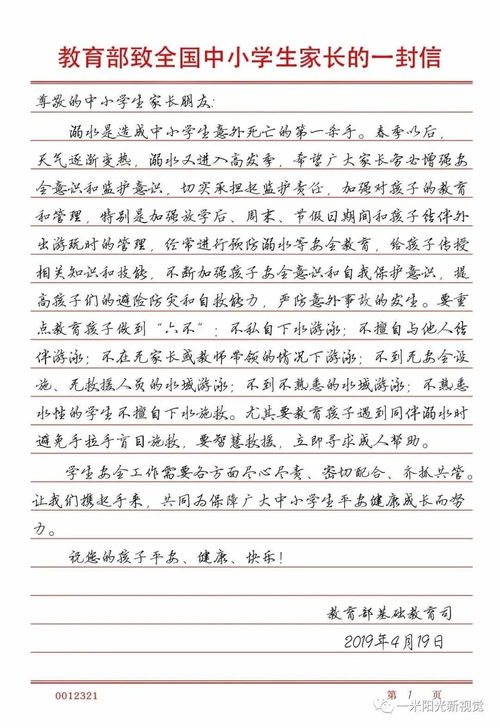 教育部致全国中小学生家长的一封信
尊敬的中小学生家长朋友:
溺水是造成中小学生意外死亡的第一杀手。春季以后,
天气逐渐变热,溺水又进入高发季,希望广大家长务必增强安
全意识和监护意识,切实承担起监护责任,加强对孩子的教育
和管理,特别是加强放学后、周末、节假日期间和孩子结伴外
出游玩时的管理,经常进行预防溺水等安全教育,给孩子传授
相关知识和技能,不断加强孩子安全意识和自我保护意识,提
高孩子们的避险防灾和自救能力,严防意外事故的发生。要重
点教育孩子做到“六不”:不私自下水游泳;不擅自与他人结
伴游泳;不在无家长或教师带领的情况下游泳;不到无安全设
施、无救援人员的水域游泳;不到不熟悉的水域游泳;不熟悉
水性的学生不擅自下水施救。尤其要教育孩子遇到同伴溺水时
避免手拉手盲目施救,要智慧救援,立即寻求成人帮助。
学生安全工作需要各方面尽心尽责、密切配合、齐抓共管。
让我们携起手来,共同为保障广大中小学生平安健康成长而努
力。
祝您的孩子平安、健康、快乐!
教育部基础教育司
2019年4月19日
0012321
第 1 页
一米阳光新视觉